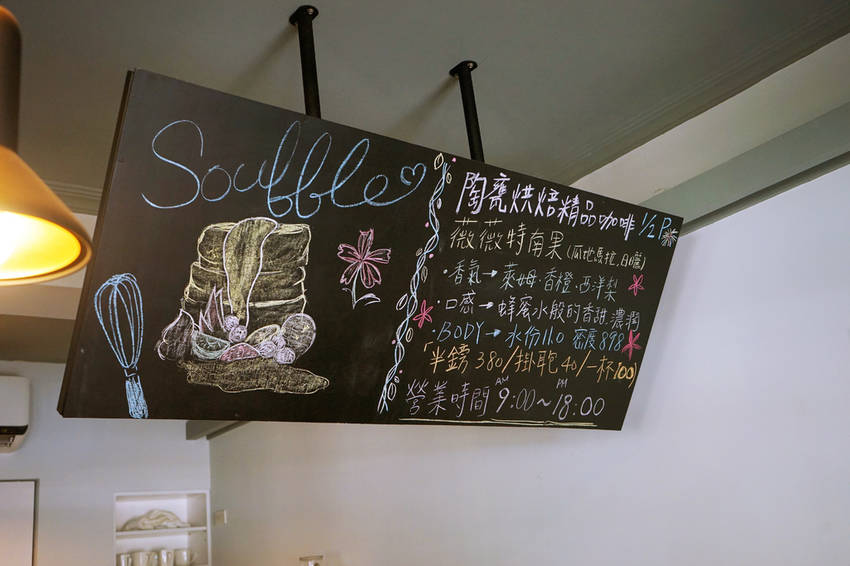 Souffle
陶甕烘焙精品咖啡 1/2 P
薇薇特南果(瓜地馬拉.日曬)
·香氣→萊姆·香橙·西洋梨
·口感→蜂蜜水般的香甜濃潤
·BODY→水份11.0 密度898
「半鎊380/掛耳包40/一杯100」
營業時間 AM 9:00~PM 18:00